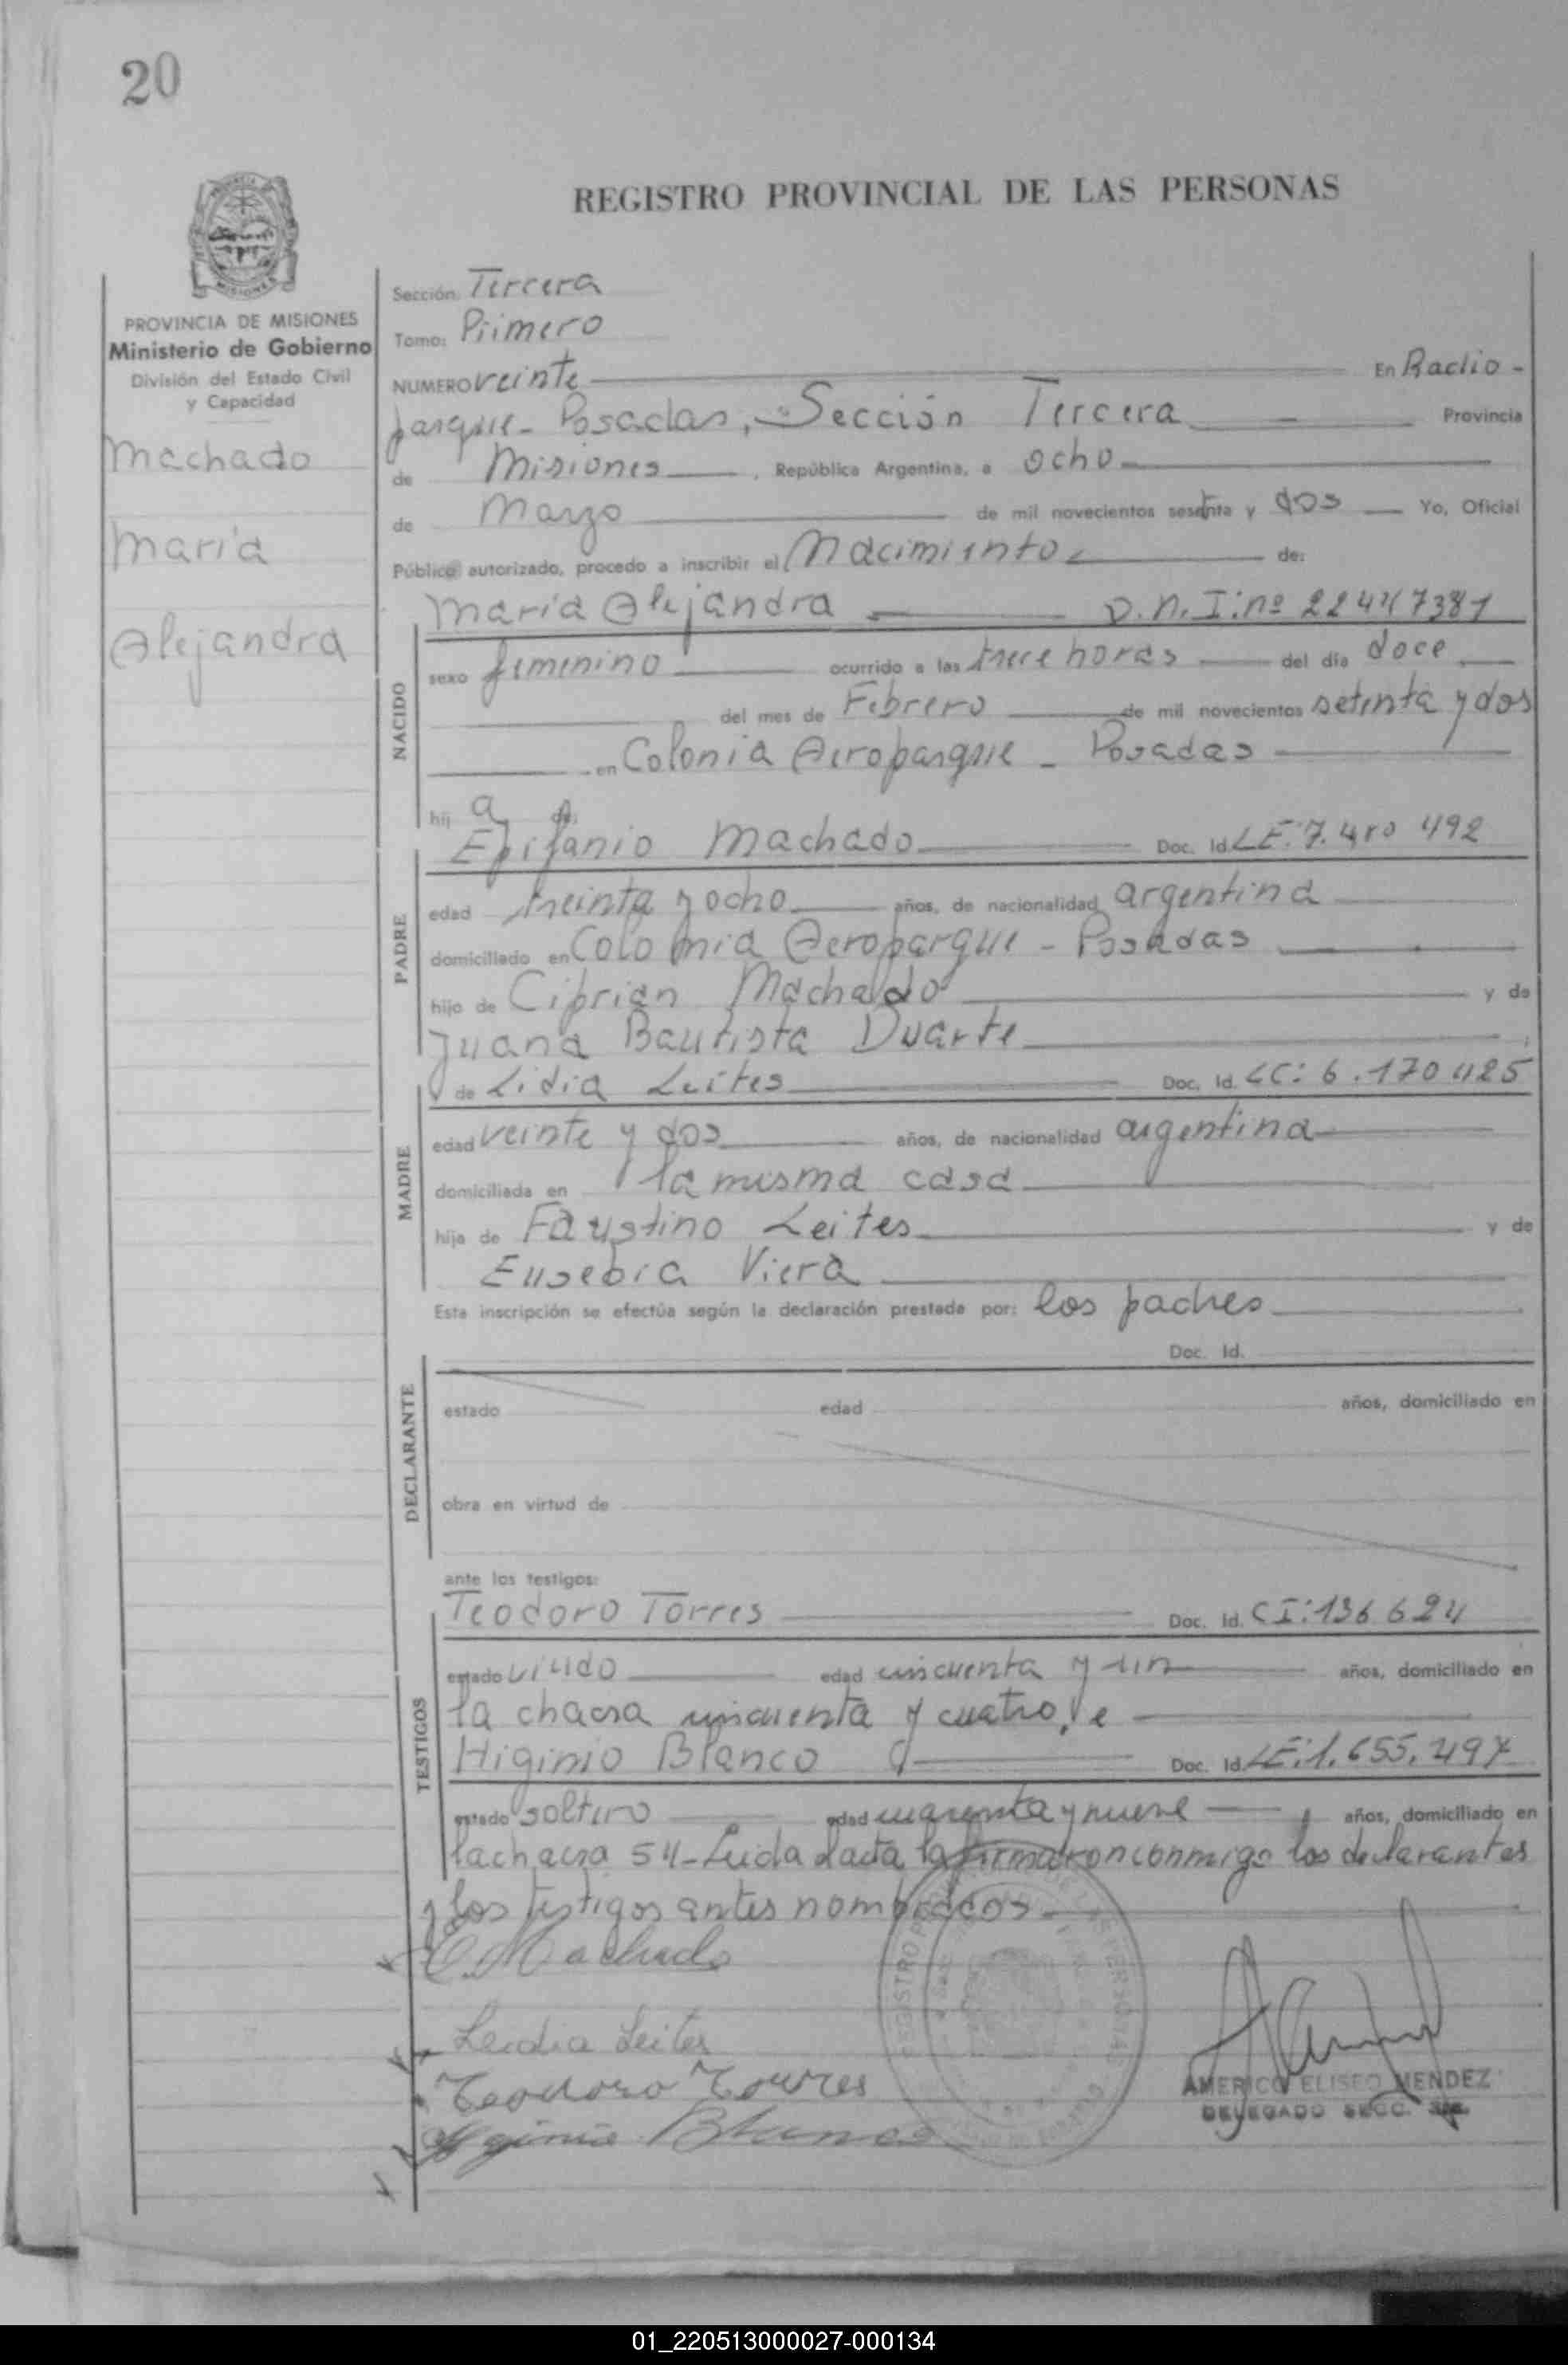 20
REGISTRO PROVINCIAL DE LAS PERSONAS
PROVINCIA DE MISIONES
Ministerio de Gobierno
División del Estado Civil
y Capacidad
Machado
María
Alejandra
Sección: Tercera
Tomo: Primero
NUMERO veinte En Radio-
parque - Posadas, - Sección Tercera Provincia
de Misiones, República Argentina, a ocho
de Marzo de mil novecientos setenta y dos Yo, Oficial
Público autorizado, procedo a inscribir el Nacimiento de:
María Alejandra D.N.I: nº 22447381
NACIDO
sexo femenino ocurrido a las trece horas del día doce
del mes de Febrero de mil novecientos setenta y dos
en Colonia Aeroparque - Posadas
hij a de:
Epifanio Machado Doc. Id. LE: 7. 492
PADRE
edad treinta y ocho años, de nacionalidad argentina
domiciliado en Colonia Aeroparque - Posadas
hijo de Ciprian Machado y de
Juana Bautista Duarte
y de Lidia Leites Doc. Id. LC: 6.170425
MADRE
edad veinte y dos años, de nacionalidad argentina
domiciliada en la misma casa
hija de Faustino Leites y de
Eusebia Viera
Esta inscripción se efectúa según la declaración prestada por: los padres
Doc. Id.
DECLARANTE
estado edad años, domiciliado en
obra en virtud de
ante los testigos:
Teodoro Torres Doc. Id. CI: 136 624
TESTIGOS
estado viudo edad cincuenta y un años, domiciliado en
la chacra cincuenta y cuatro, y de
Higinio Blanco Doc. Id. LE: 1.655.497
estado soltero edad cuarenta y nueve años, domiciliado en
la chacra 54 - Leida el acta la firmaron conmigo los declarantes
y los testigos antes nombrados -
E. Machado
Leidia Leites
Teodoro Torres
Iginio Blanco
AMERICO ELISEO MENDEZ
DELEGADO SECC. 3ra.
01_220513000027-000134